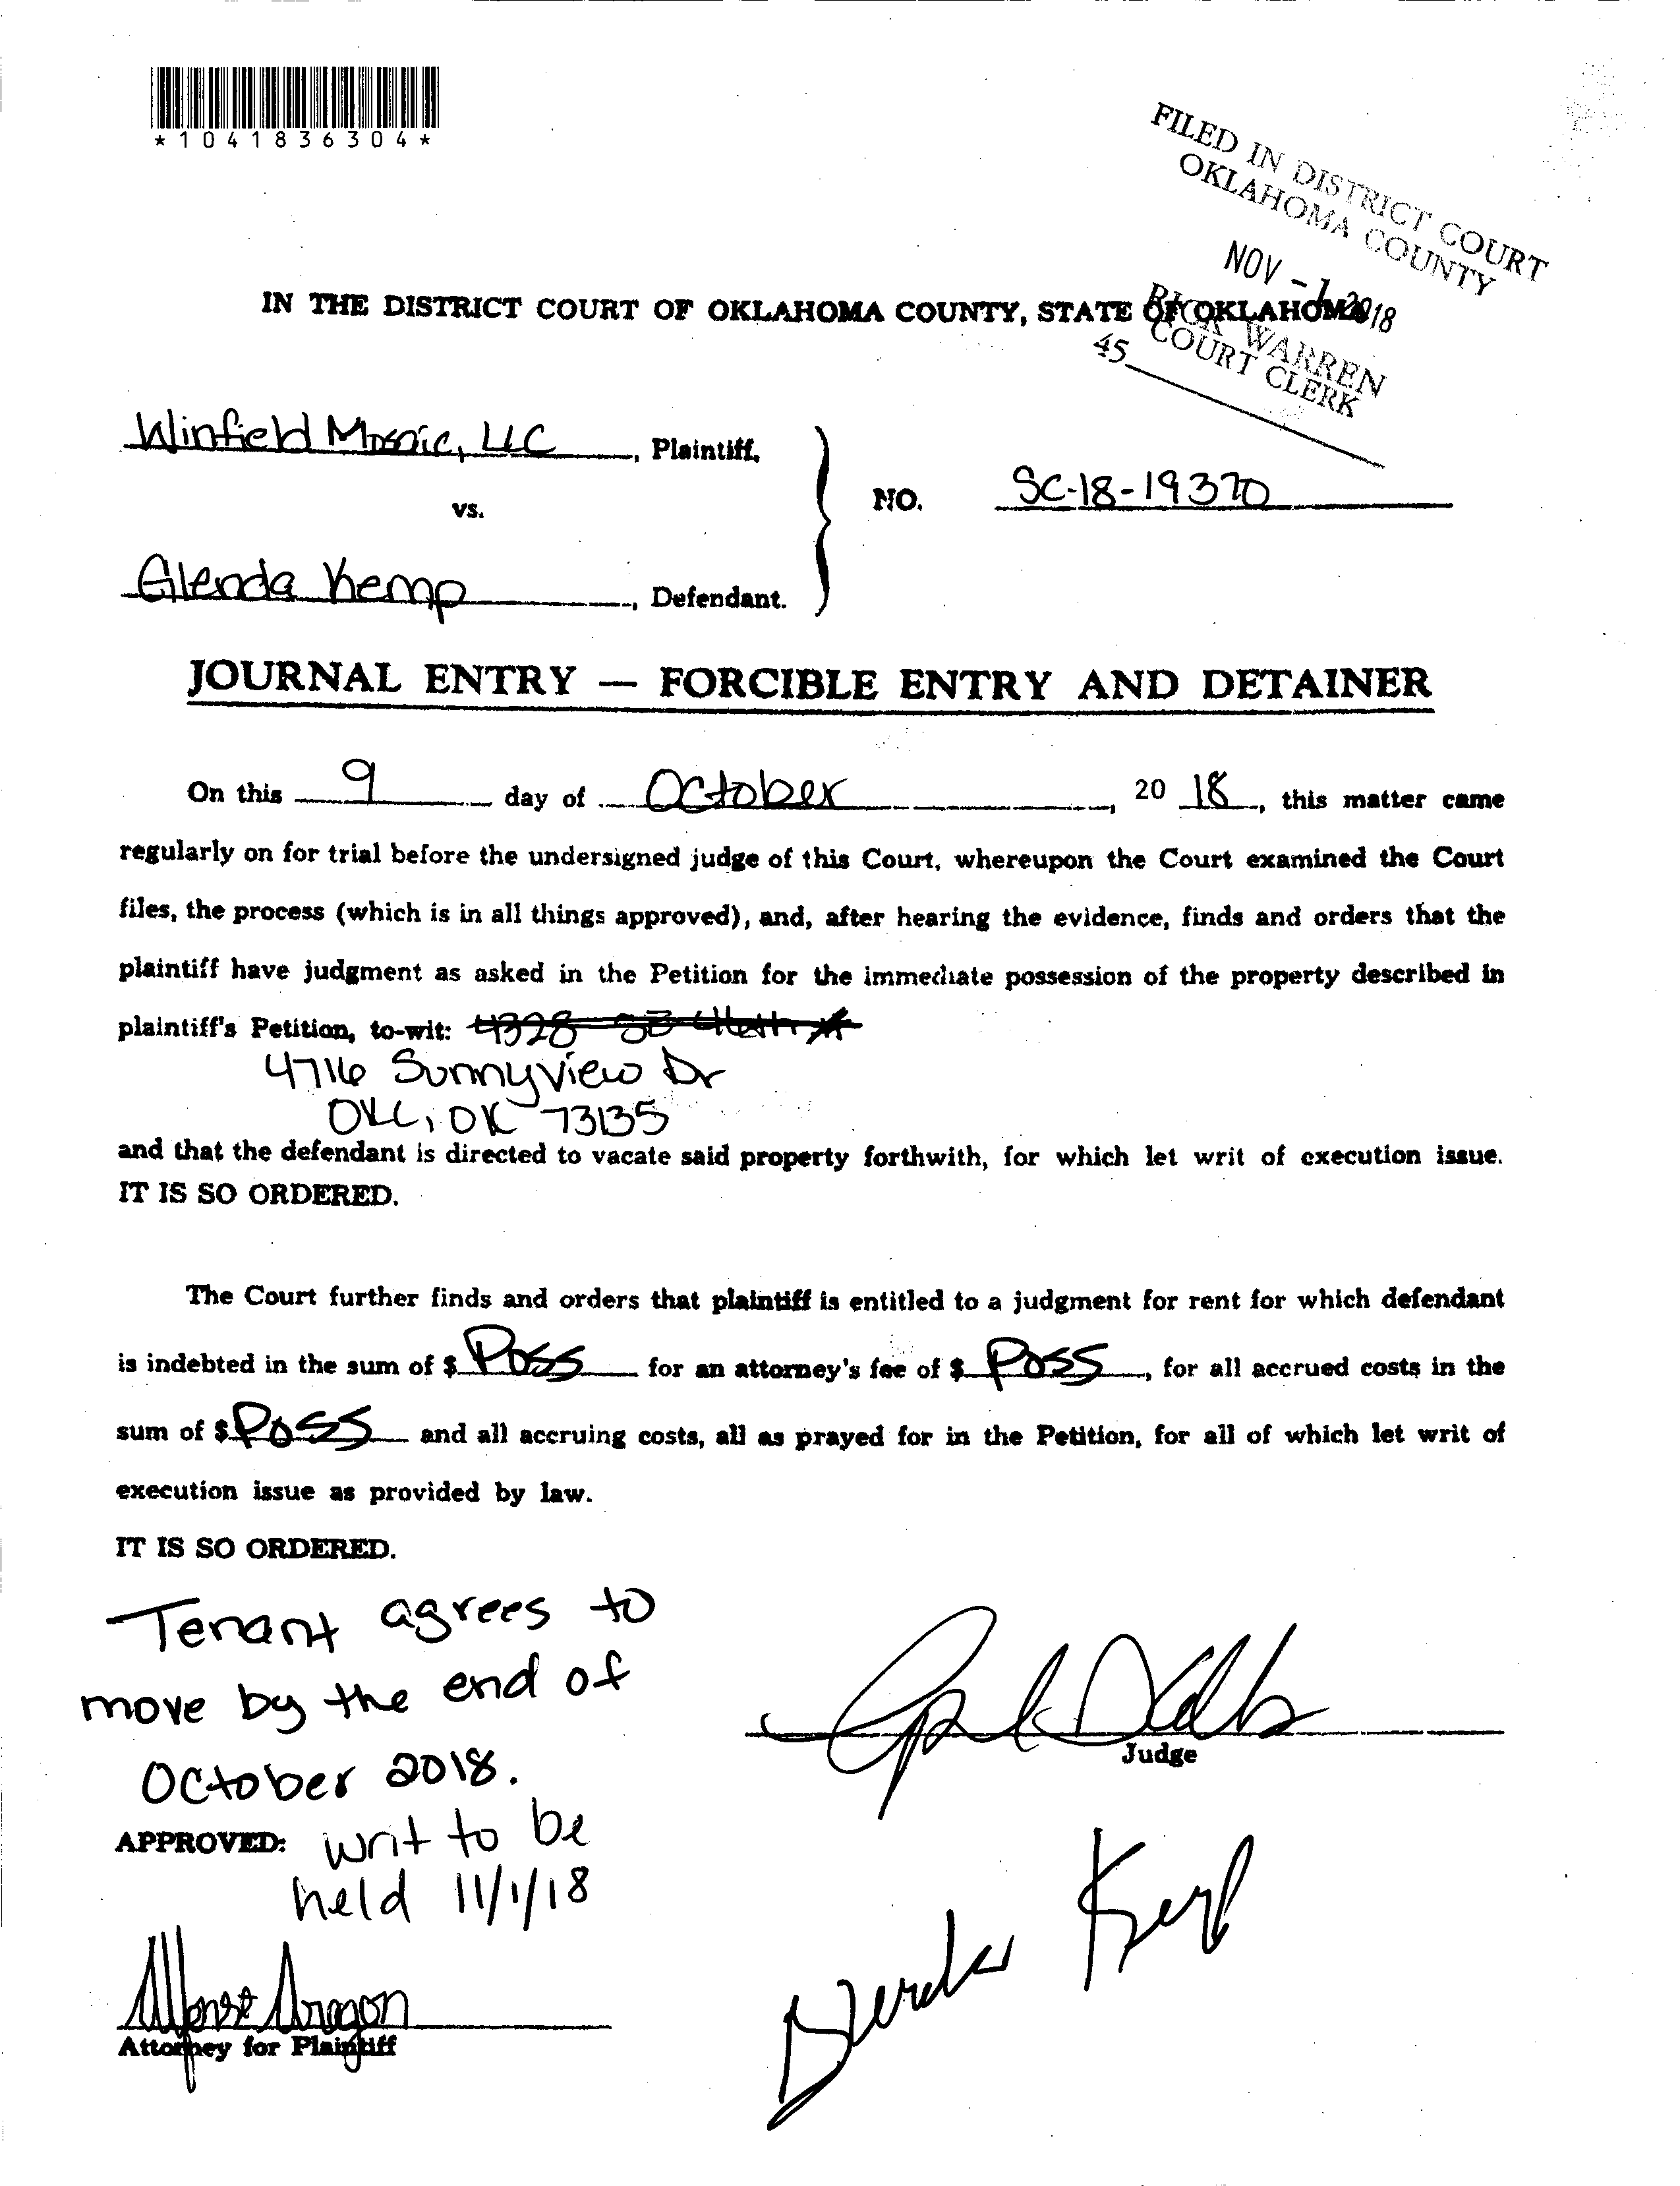 *1041836304*
FILED IN DISTRICT COURT
OKLAHOMA COUNTY
NOV - 1 2018
RICK WARREN
COURT CLERK
45
IN THE DISTRICT COURT OF OKLAHOMA COUNTY, STATE OF OKLAHOMA
Winfield Mosaic, LLC, Plaintiff,
vs.
NO. SC-18-19370
Glenda Kemp, Defendant.
JOURNAL ENTRY — FORCIBLE ENTRY AND DETAINER
On this 9 day of October, 20 18, this matter came
regularly on for trial before the undersigned judge of this Court, whereupon the Court examined the Court
files, the process (which is in all things approved), and, after hearing the evidence, finds and orders that the
plaintiff have judgment as asked in the Petition for the immediate possession of the property described in
plaintiff's Petition, to-wit: 4328 SE
4716 Sunnyview Dr
OKC, OK 73135
and that the defendant is directed to vacate said property forthwith, for which let writ of execution issue.
IT IS SO ORDERED.
The Court further finds and orders that plaintiff is entitled to a judgment for rent for which defendant
is indebted in the sum of $ Poss for an attorney's fee of $ Poss, for all accrued costs in the
sum of $ Poss and all accruing costs, all as prayed for in the Petition, for all of which let writ of
execution issue as provided by law.
IT IS SO ORDERED.
Tenant agrees to
move by the end of
October 2018.
Judge
APPROVED: writ to be
held 11/1/18
Alfonse Aragon
Attorney for Plaintiff
Glenda Kemp